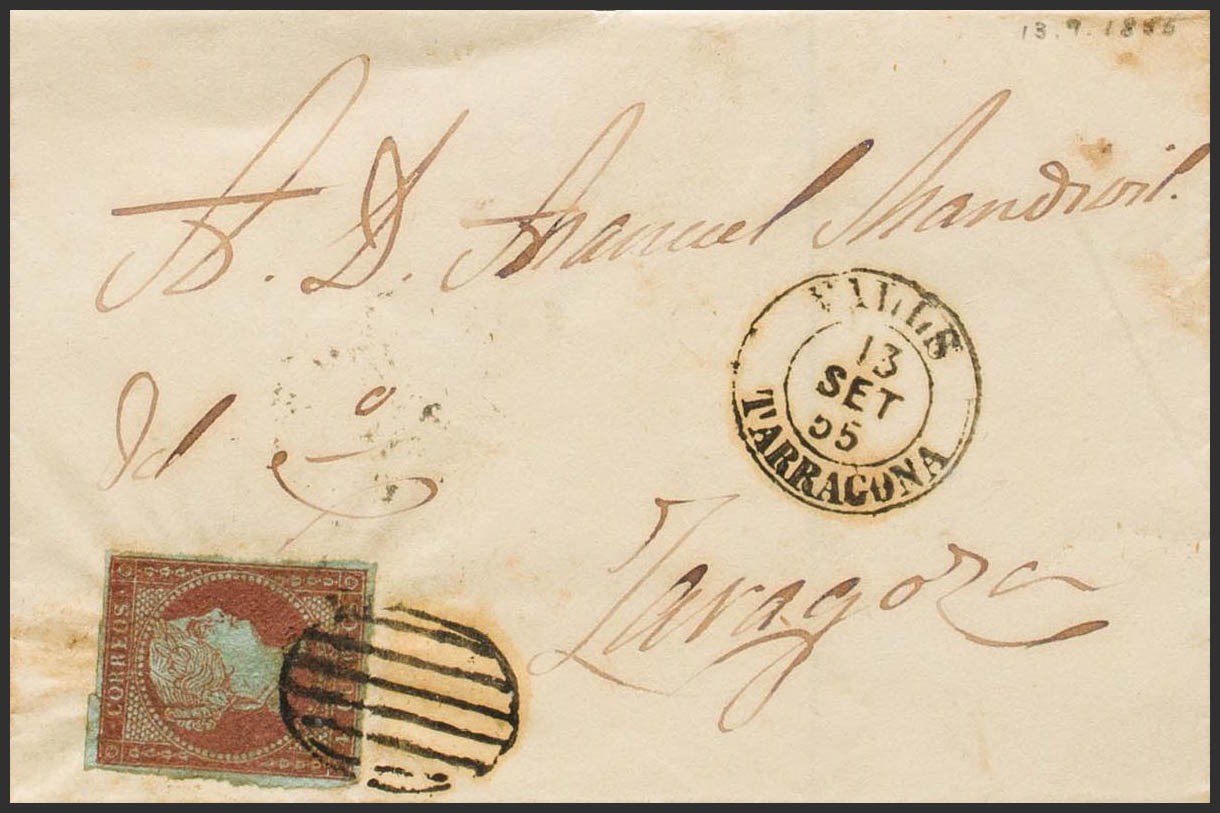 13.9.1855
A. D. Manuel Mandivil.
VALLS
13
SET
55
TARRAGONA
del Cº
Zaragoza
CORREOS